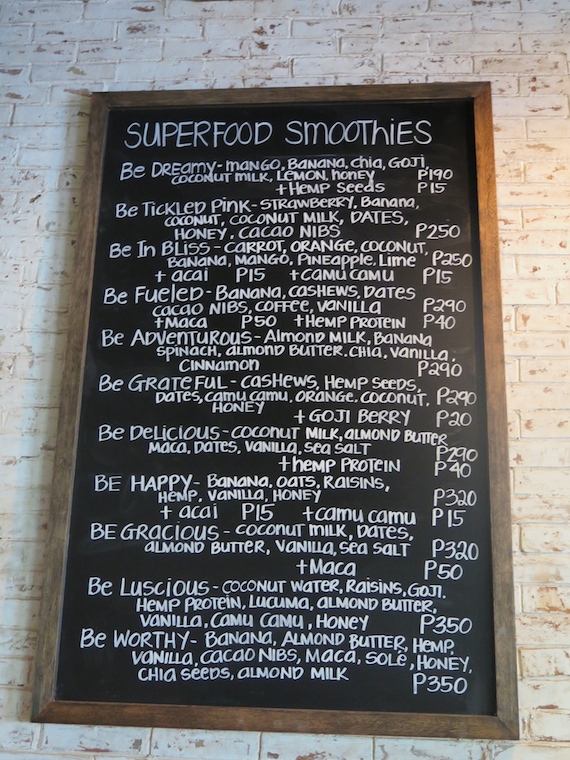 SUPERFOOD SMOOTHIES
Be DREAMY - MANGO, BANANA, chia, GOJI,
COCONUT MILK, LEMON, honey P190
+ Hemp Seeds P15
Be TICKLED PINK - STRAWBERRY, Banana,
COCONUT, COCONUT MILK, DATES,
HONEY, CACAO NIBS P250
Be IN BLISS - CARROT, ORANGE, COCONUT,
BANANA, MANGO, PINEAPPLE, Lime P250
+ acai P15 + camu camu P15
Be FUELED - BANANA, CASHEWS, DATES
CACAO NIBS, COFFEE, VANILLA P290
+ MACA P50 + HEMP PROTEIN P40
Be ADVENTUROUS - ALMOND MILK, BANANA
SPINACH, ALMOND BUTTER, CHIA, VANILLA,
CINNAMON P290
Be GRATEFUL - CASHEWS, HEMP SEEDS,
DATES, CAMU CAMU, ORANGE, COCONUT, P290
HONEY
+ GOJI BERRY P20
Be DELICIOUS - COCONUT MILK, ALMOND BUTTER
MACA, DATES, VANILLA, SEA SALT P290
+ hemp PROTEIN P40
BE HAPPY - BANANA, OATS, RAISINS,
HEMP, VANILLA, HONEY P320
+ acai P15 + camu camu P15
BE GRACIOUS - COCONUT MILK, DATES,
ALMOND BUTTER, VANILLA, SEA SALT P320
+ MACA P50
Be LUSCIOUS - COCONUT WATER, RAISINS, GOJI,
HEMP PROTEIN, LUCUMA, ALMOND BUTTER,
VANILLA, CAMU CAMU, HONEY P350
Be WORTHY - BANANA, ALMOND BUTTER, HEMP,
VANILLA, CACAO NIBS, MACA, SOLE, HONEY,
CHIA SEEDS, ALMOND MILK P350